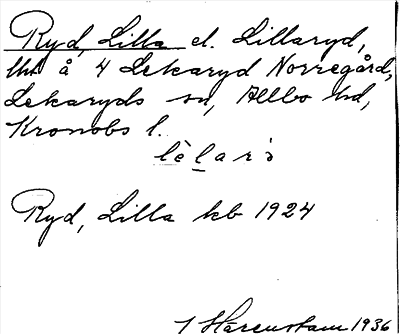 Ryd, Lilla el. Lillaryd,
lht å 4 Lekaryd Norregård,
Lekaryds sn, Allbo hd,
Kronobs l.
Ryd, Lilla kb 1924
J Harenstam 1936